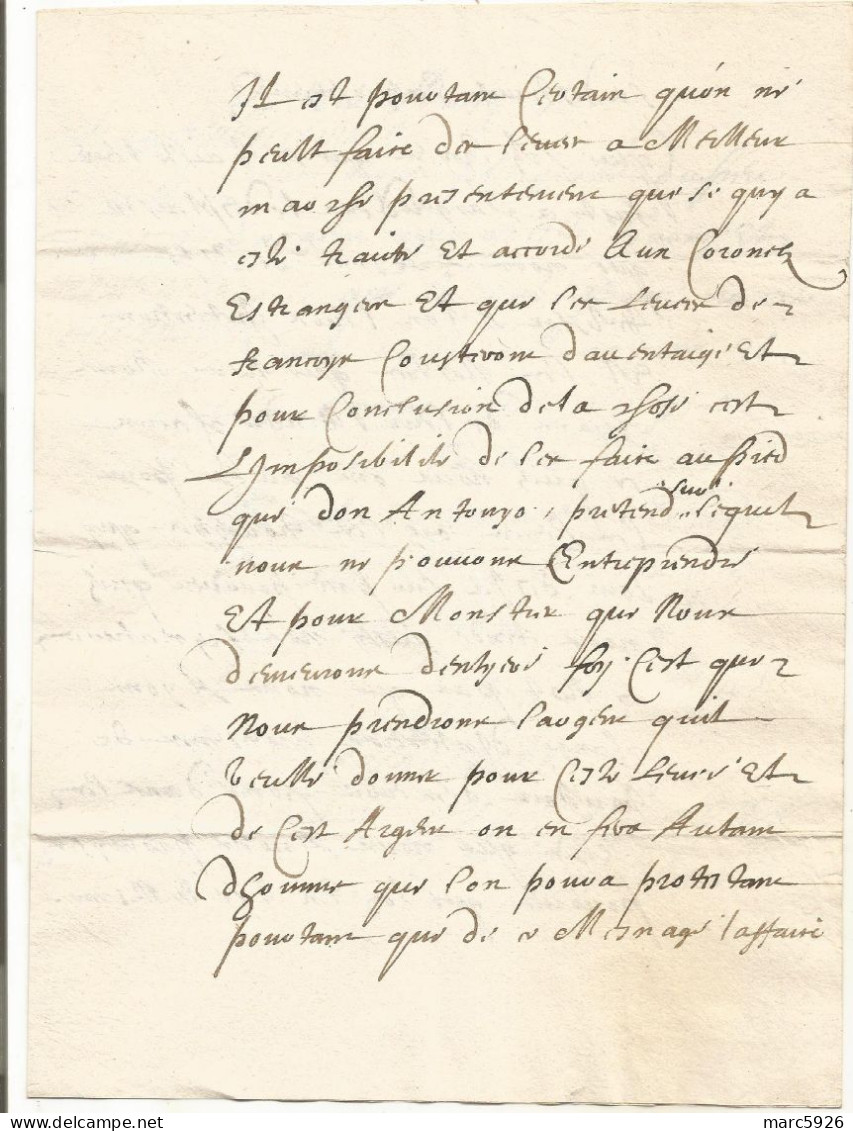 Il est pourtant Certain qu'on ne
peult faire des leuees a Meilleur
marche presentement que se quy a
este traite Et accorde A un Coronel
Estrangers Et que les Leuees de
francoys Cousteront dauentaige Et
pour Conclusion de la chose cest
L'Imposibilite de les faire au Pied
que don Antonyo pretend sur lequel
nous ne pouuons Entreprendre
Et pour Monstrer que Nous
demeurons dentyere foy Cest que
Nous prendrons largent quil
veulle donner pour Ceste Leuee Et
de Cest Argent on en fera Autant
dhommes que lon poura protestant
pourtant que de Mesnage laffaire
delcampe.net
marc5926